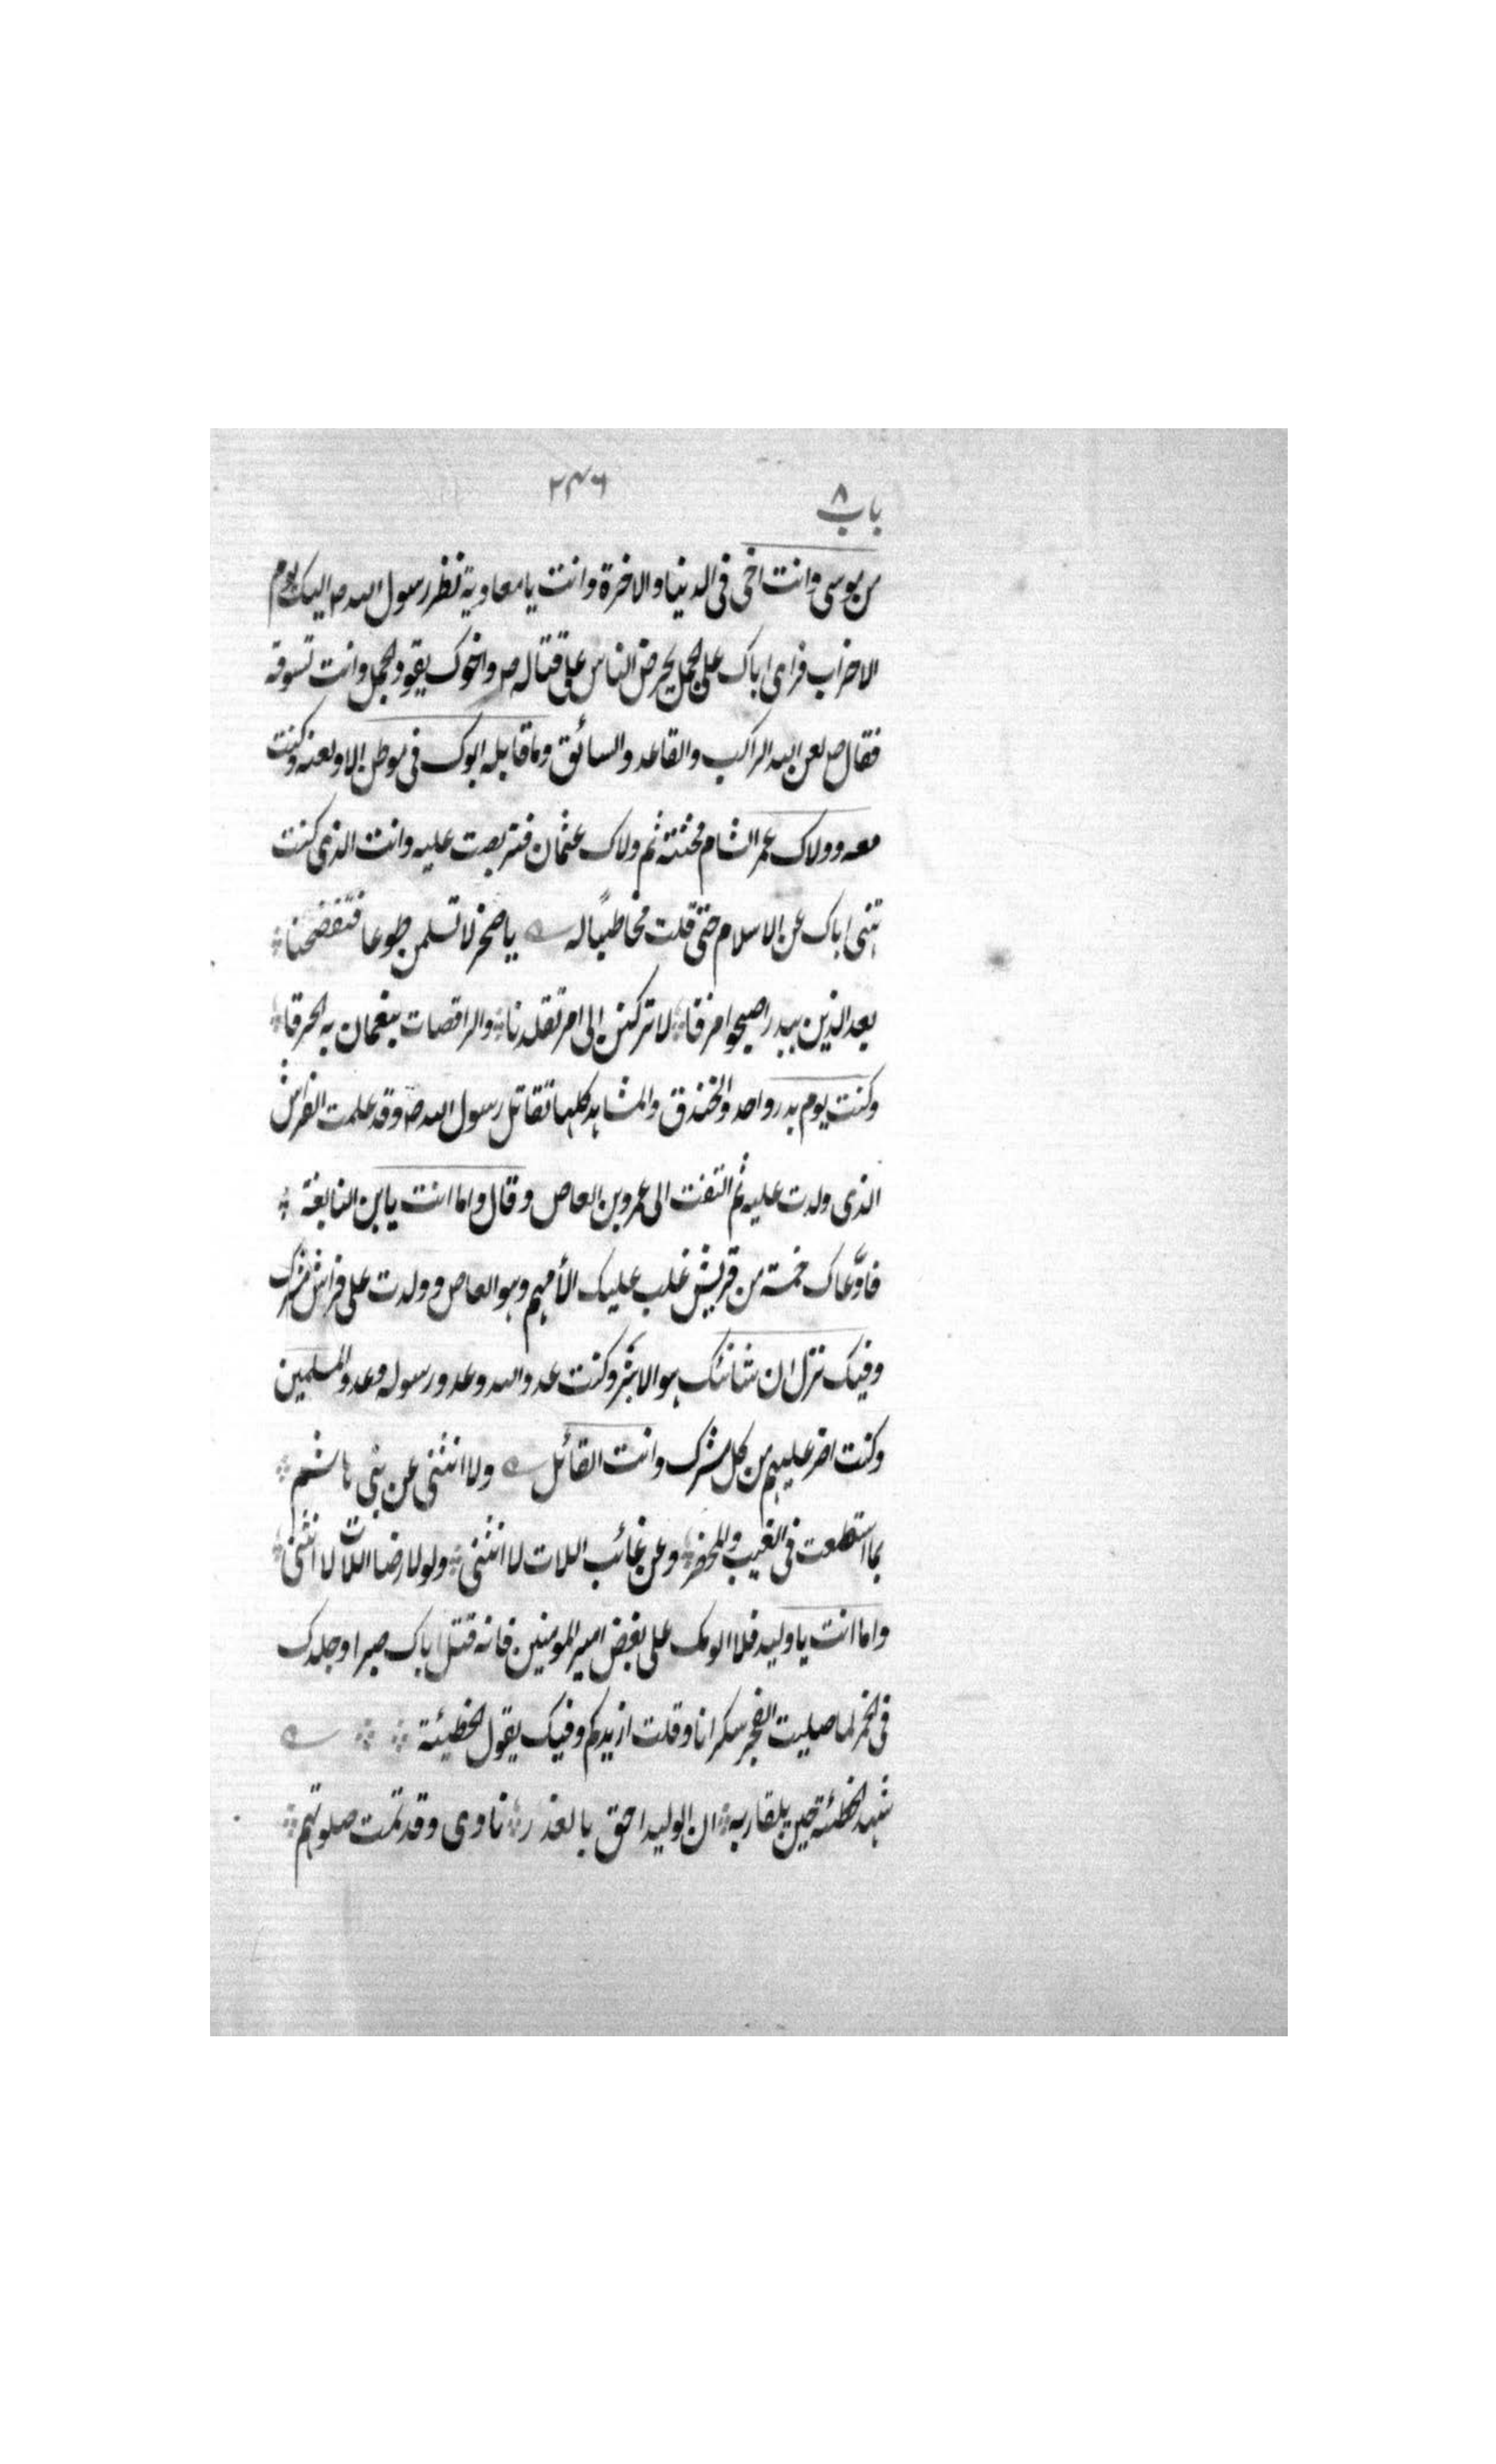 باب ۸
۲۴۶
من موسى وانت اخى فى الدنيا والاخرة وانت يا معاوية نظر رسول الله ص اليك يوم
الاحزاب فراى اباك على الجمل يحرض الناس على قتاله ص واخوك يقود الجمل وانت تسوقه
فقال ص لعن الله الراكب والقاعد والسائق وما قابله ابوك فى موطن الا ولعنه وكنت
معه وولاك عمر الشام فخنته ثم ولاك عثمان فتربصت عليه وانت الذى كنت
تنهى اباك عن الاسلام حتى قلت مخاطبًا له يا صخر لا تسلمن طوعا فتفضحنا
بعد الذين ببدر اصبحوا مزقا لا تركنن الى امر تقلدنا والراقصات بنعمان به الحرقا
وكنت يوم بدر واحد والخندق والمشاهد كلها تقاتل رسول الله ص وقد علمت الفراش
الذى ولدت عليه ثم التفت الى عمرو بن العاص وقال واما انت يا بن النابغة
فادّعاك خمسة من قريش غلب عليك الأمهم وهو العاص وولدت على فراش مشرك
وفيك نزل ان شانئك هو الابتر وكنت عدو الله وعدو رسوله وعدو المسلمين
وكنت اضر عليهم من كل مشرك وانت القائل ولا انثنى عن بنى هاشم
بما اسطعت فى الغيب والمحضر وعن غائب اللات لا انثنى ولولا رضا اللات لا انثنى
واما انت يا وليد فلا الومك على بغض امير المومنين فانه قتل اباك صبرا وجلدك
فى الخمر لما صليت الفجر سكرانا وقلت ازيدكم وفيك يقول الحطيئة
شهد الحطئة حين يلقا ربه ان الوليد احق بالعذر نادى وقد تمت صلوتهم